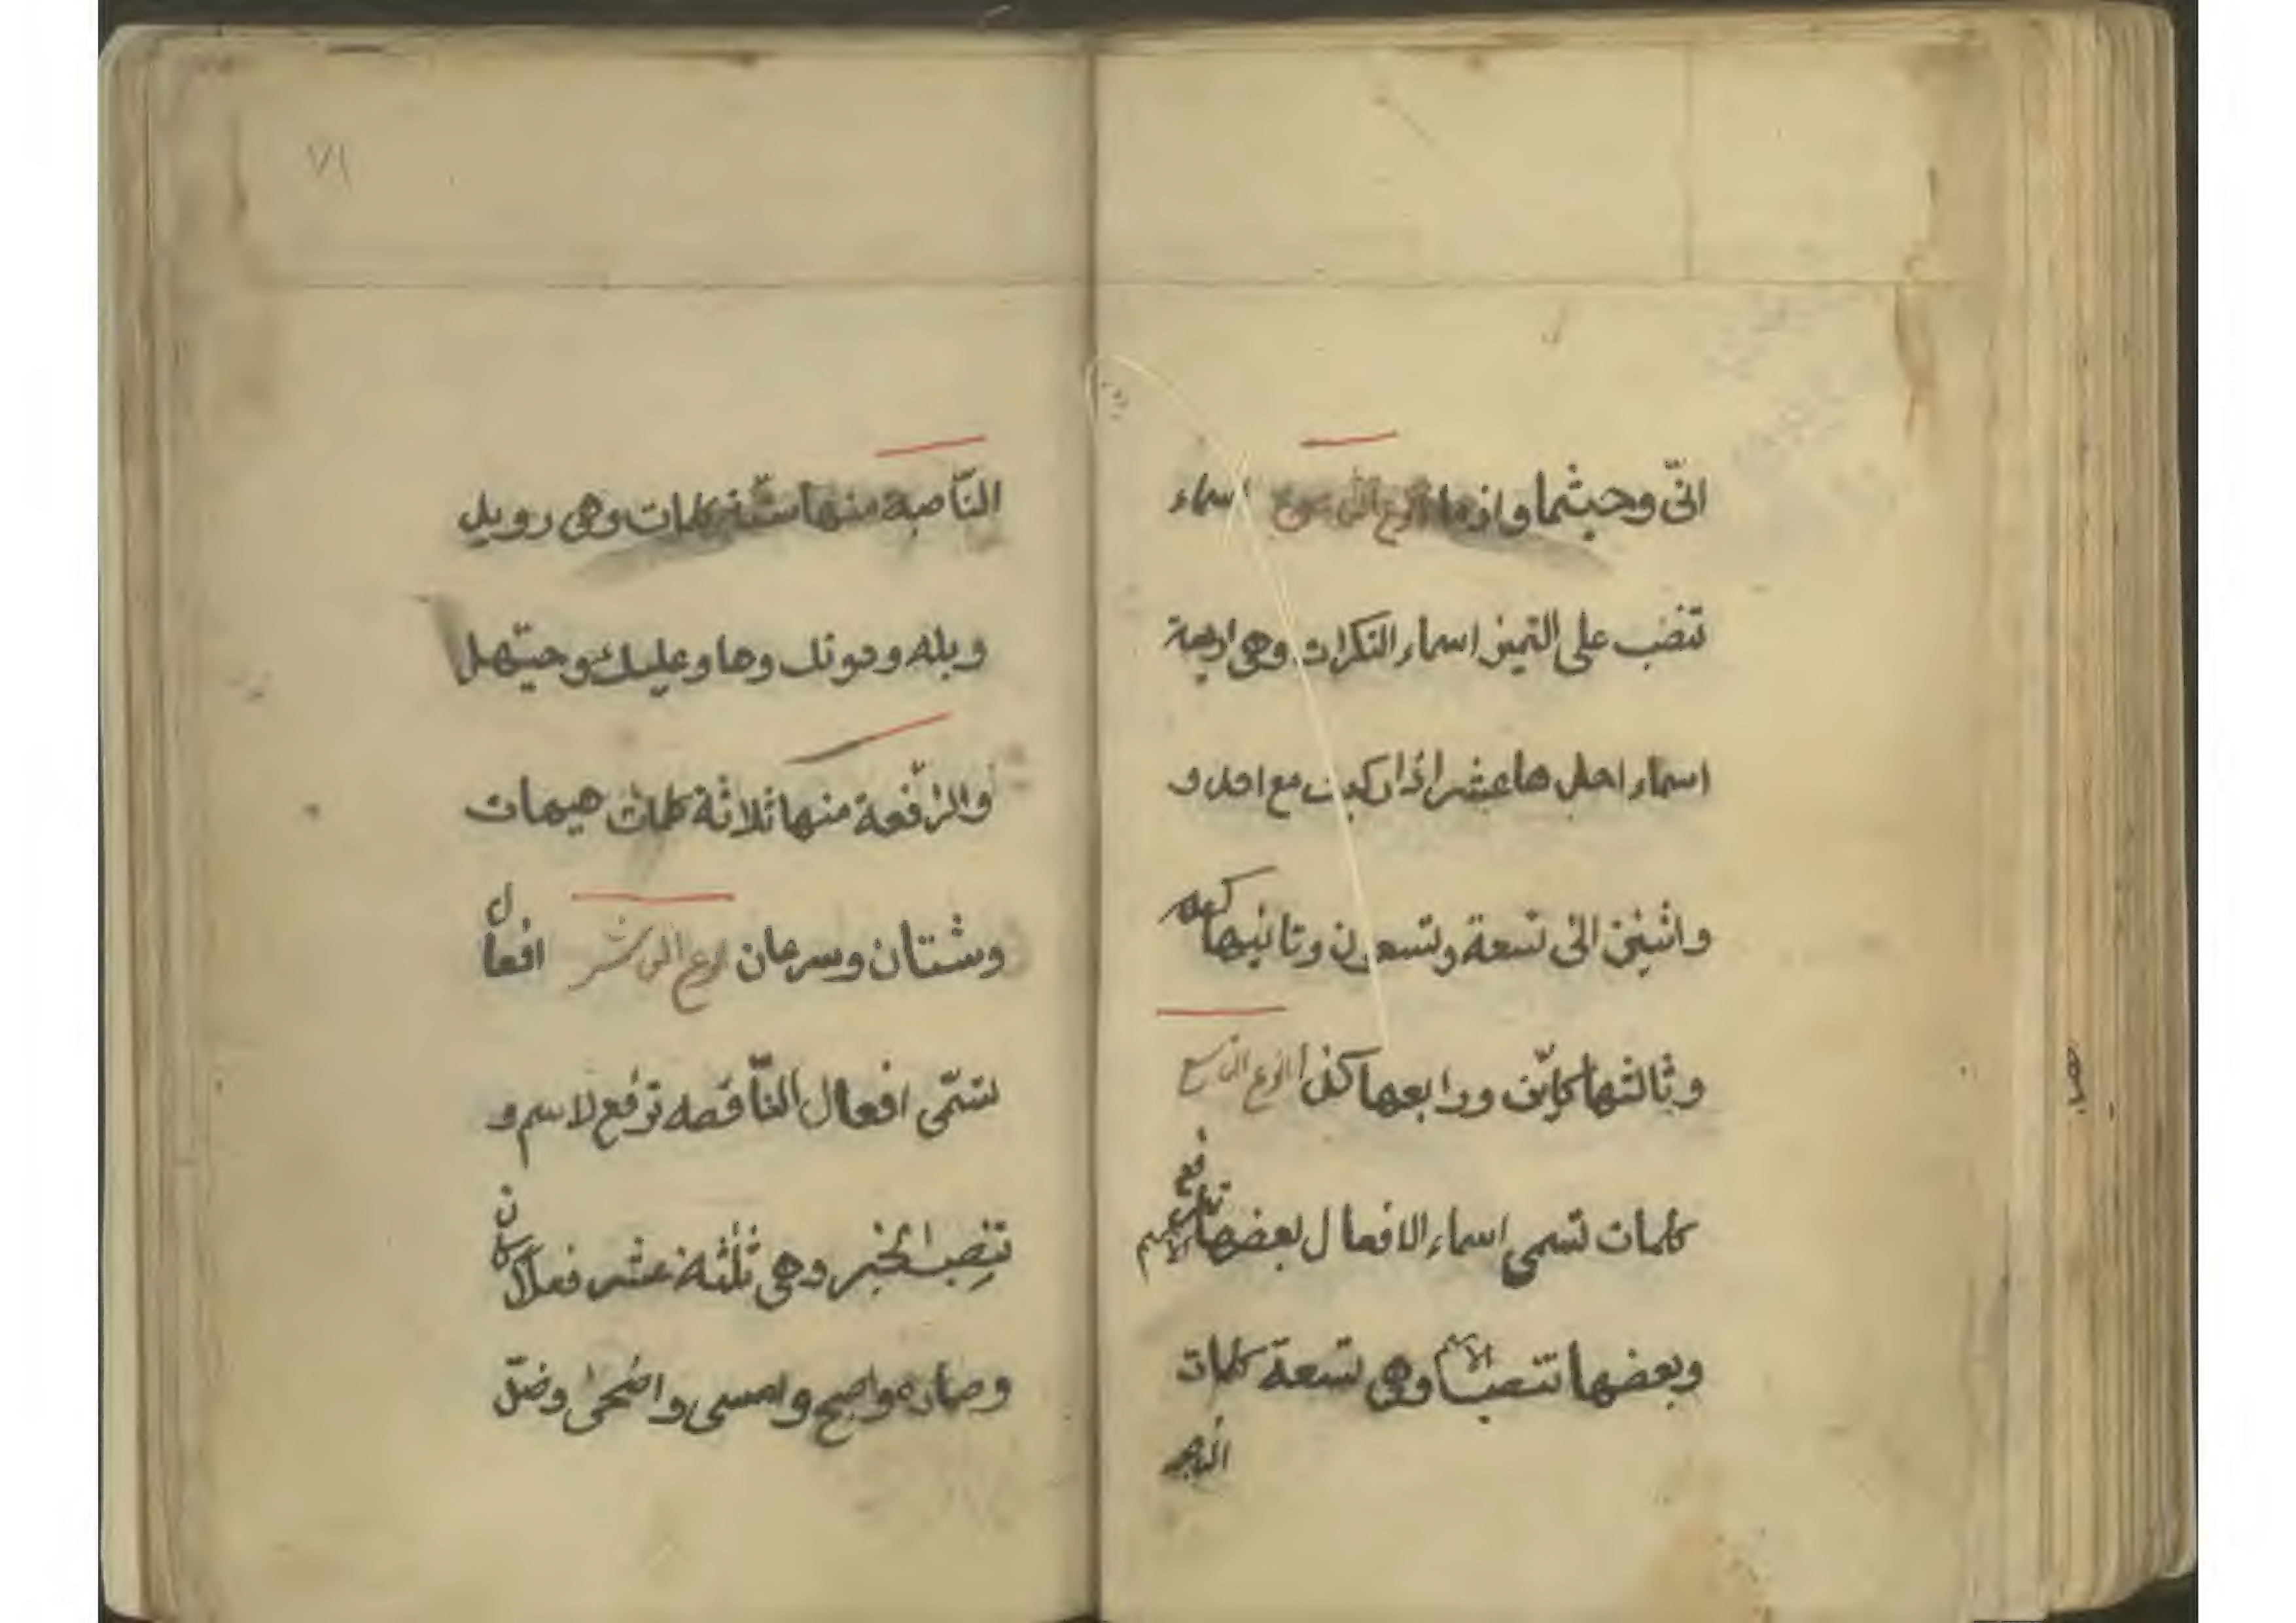 انّى وحيثما واذما النوع الثامن اسماء
تنصب على التميز اسماء النكرات وهى اربعة
اسماء احدها عشر اذا ركبت مع احد و
واثنين الى تسعة وتسعون وثانيها كم
وثالثها كايّن ورابعها كذا النوع التاسع
كلمات تسمى اسماء الافعال بعضها ترفع الاسم
وبعضها تنصب الاسم وهى تسعة كلمات
الناصبة
٧١
النّاصبة منها ستّة كلمات وهى رويد
وبله ودونك وها وعليك وحيّهل
والرّفعة منها ثلاثة كلمات هيهات
وشتان وسرعان النوع العاشر افعال
تسمّى افعال النّاقصه ترفع لاسم و
تنصب الخبر وهى ثلثة عشر فعلا كان
وصار واصبح وامسى واضحى وضلّ